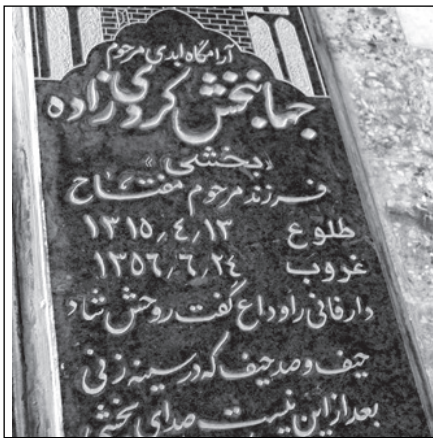 آرامگاه ابدی مرحوم
جهانبخش کردی زاده
«بخشی»
فرزند مرحوم مفتاح
طلوع ۱۳٫۴٫۱۳۱۵
غروب ۲۴٫۶٫۱۳۵۶
دار فانی را وداع گفت روحش شاد
حیف و صد حیف که در سینه زنی
بعد از این نیست صدای بخشی